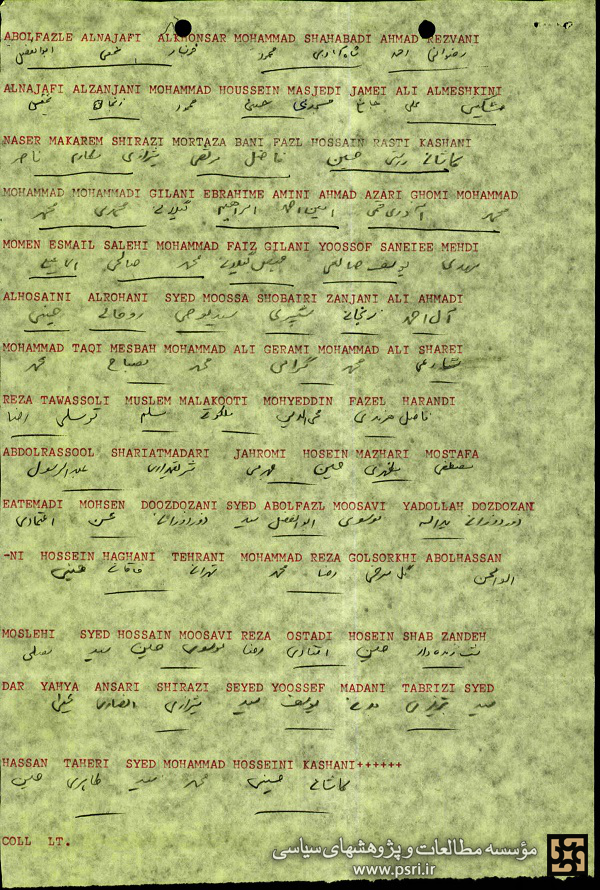 ABOLFAZLE ALNAJAFI ALKHONSAR MOHAMMAD SHAHABADI AHMAD REZVANI
رضوانی احمد شاه آبادی محمد خونسار نجفی ابوالفضل
ALNAJAFI ALZANJANI MOHAMMAD HOUSSEIN MASJEDI JAMEI ALI ALMESHKINI
مشکینی علی جامع مسجدی حسین محمد زنجانی نجفی
NASER MAKAREM SHIRAZI MORTAZA BANI FAZL HOSSAIN RASTI KASHANI
کاشانی راستی حسین فاضل مرتضی شیرازی مکارم ناصر
MOHAMMAD MOHAMMADI GILANI EBRAHIME AMINI AHMAD AZARI GHOMI MOHAMMAD
محمد آذری قمی احمد امینی ابراهیم گیلانی محمدی محمد
MOMEN ESMAIL SALEHI MOHAMMAD FAIZ GILANI YOOSSOF SANEIEE MEHDI
مهدی یوسف صانعی فیض گیلانی محمد صالحی اسماعیل
ALHOSAINI ALROHANI SYED MOOSSA SHOBAIRI ZANJANI ALI AHMADI
آل احمد زنجانی شبیری سید موسی روحانی حسینی
MOHAMMAD TAQI MESBAH MOHAMMAD ALI GERAMI MOHAMMAD ALI SHAREI
شارعی محمد گرامی محمد مصباح محمد
REZA TAWASSOLI MUSLEM MALAKOOTI MOHYEDDIN FAZEL HARANDI
فاضل هرندی محی الدین ملکوتی مسلم توسلی رضا
ABDOLRASSOOL SHARIATMADARI JAHROMI HOSEIN MAZHARI MOSTAFA
مصطفی مظهری حسین جهرمی شریعتمداری عبدالرسول
EATEMADI MOHSEN DOOZDOZANI SYED ABOLFAZL MOOSAVI YADOLLAH DOZDOZANI
دوزدوزانی یداله موسوی ابوالفضل سید دوزدوزانی محسن اعتمادی
-NI HOSSEIN HAGHANI TEHRANI MOHAMMAD REZA GOLSORKHI ABOLHASSAN
ابوالحسن گل سرخی رضا محمد تهرانی حقانی حسین
MOSLEHI SYED HOSSAIN MOOSAVI REZA OSTADI HOSEIN SHAB ZANDEH
شب زنده دار حسین استادی رضا موسوی حسین سید مصلحی
DAR YAHYA ANSARI SHIRAZI SEYED YOOSSEF MADANI TABRIZI SYED
سید تبریزی مدنی یوسف سید شیرازی انصاری یحیی
HASSAN TAHERI SYED MOHAMMAD HOSSEINI KASHANI++++++
کاشانی حسینی محمد سید طاهری حسن
COLL LT.
مؤسسه مطالعات و پژوهشهای سیاسی
www.psri.ir